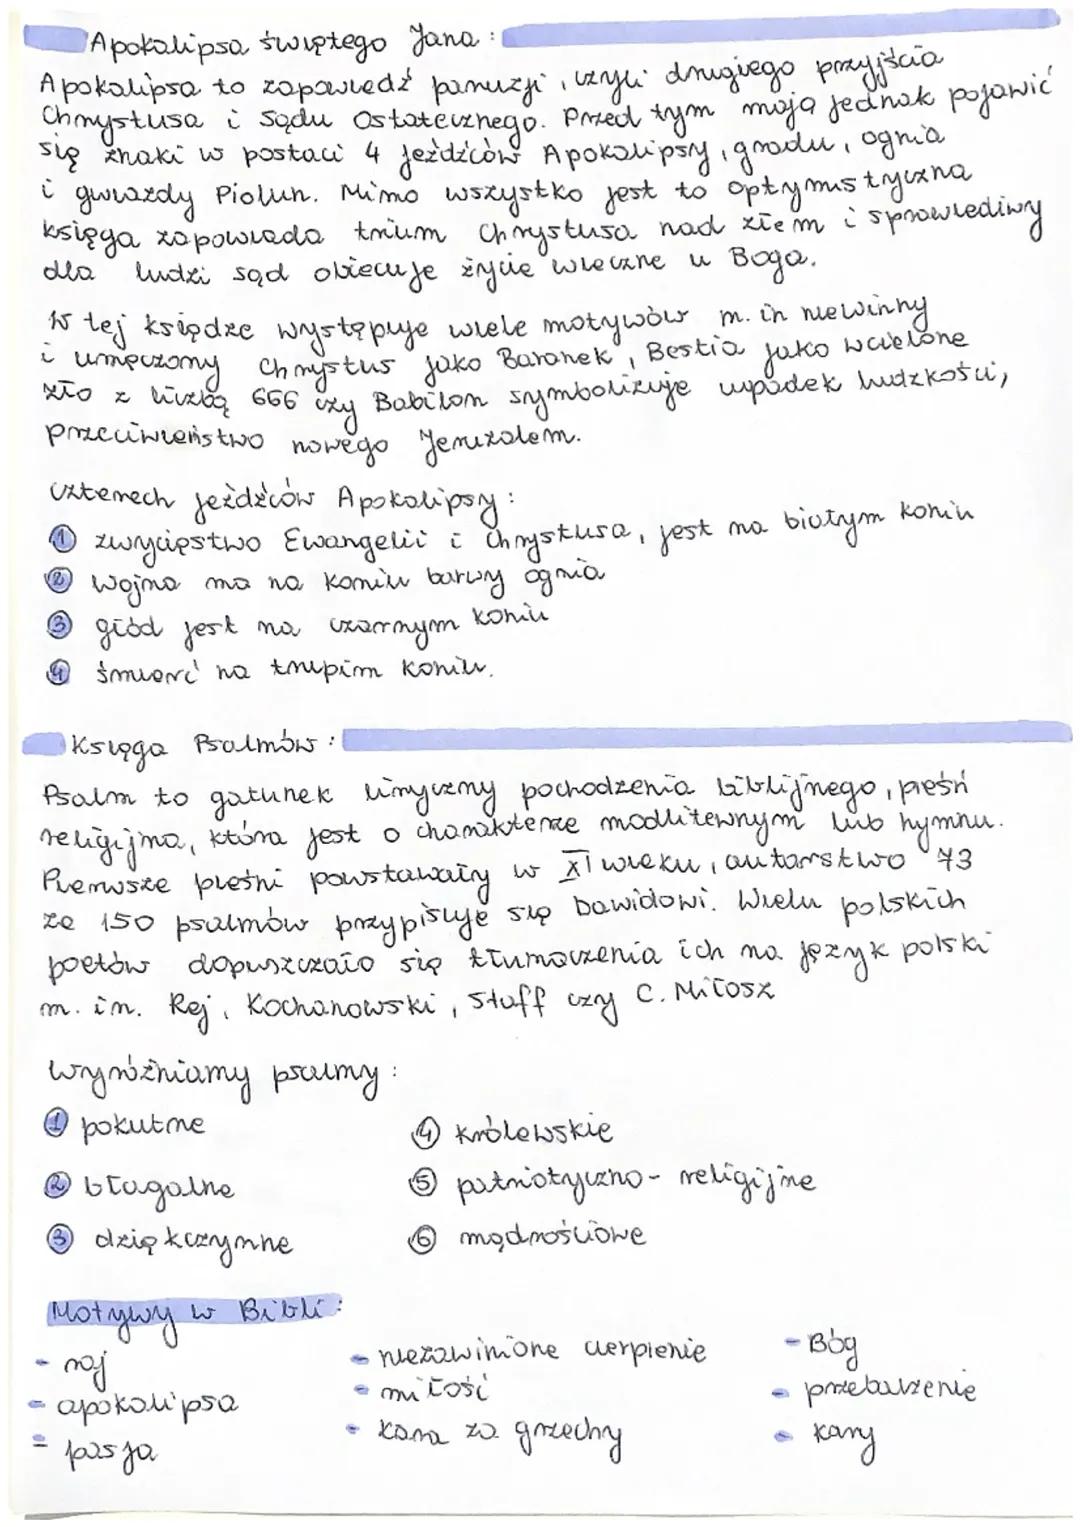 Apokalipsa świętego Jana:
Apokalipsa to zapowiedź paruzji, czyli drugiego przyjścia
Chrystusa i Sądu Ostatecznego. Przed tym mają jednak pojawić
się znaki w postaci 4 jeźdźców Apokalipsy, gradu, ognia
i gwiazdy Piołun. Mimo wszystko jest to optymistyczna
księga zapowiada trium Chrystusa nad złem i sprawiedliwy
dla ludzi sąd obiecuje życie wieczne u Boga.
W tej księdze występuje wiele motywów m. in niewinny
i umęczony Chrystus jako Baranek, Bestia jako wcielone
zło z liczbą 666 czy Babilon symbolizuje upadek ludzkości,
przeciwieństwo nowego Jeruzalem.
czterech jeźdźców Apokalipsy:
1 zwycięstwo Ewangelii i Chrystusa, jest na białym koniu
2 wojna ma na koniu barwy ognia
3 głód jest na czarnym koniu
4 śmierć na trupim koniu.
Księga Psalmów:
Psalm to gatunek liryczny pochodzenia biblijnego, pieśń
religijna, która jest o charakterze modlitewnym lub hymnu.
Pierwsze pieśni powstawały w XI wieku, autorstwo 73
ze 150 psalmów przypisuje się Dawidowi. Wielu polskich
poetów dopuszczało się tłumaczenia ich na język polski
m. in. Rej, Kochanowski, Staff czy C. Miłosz
Wyróżniamy psalmy:
1 pokutne
2 błagalne
3 dziękczynne
4 królewskie
5 patriotyczno-religijne
6 mądrościowe
Motywy w Bibli:
- raj
- apokalipsa
- pasja
- niezawinione cierpienie
- miłość
- kara za grzechy
- Bóg
- przebaczenie
- kary